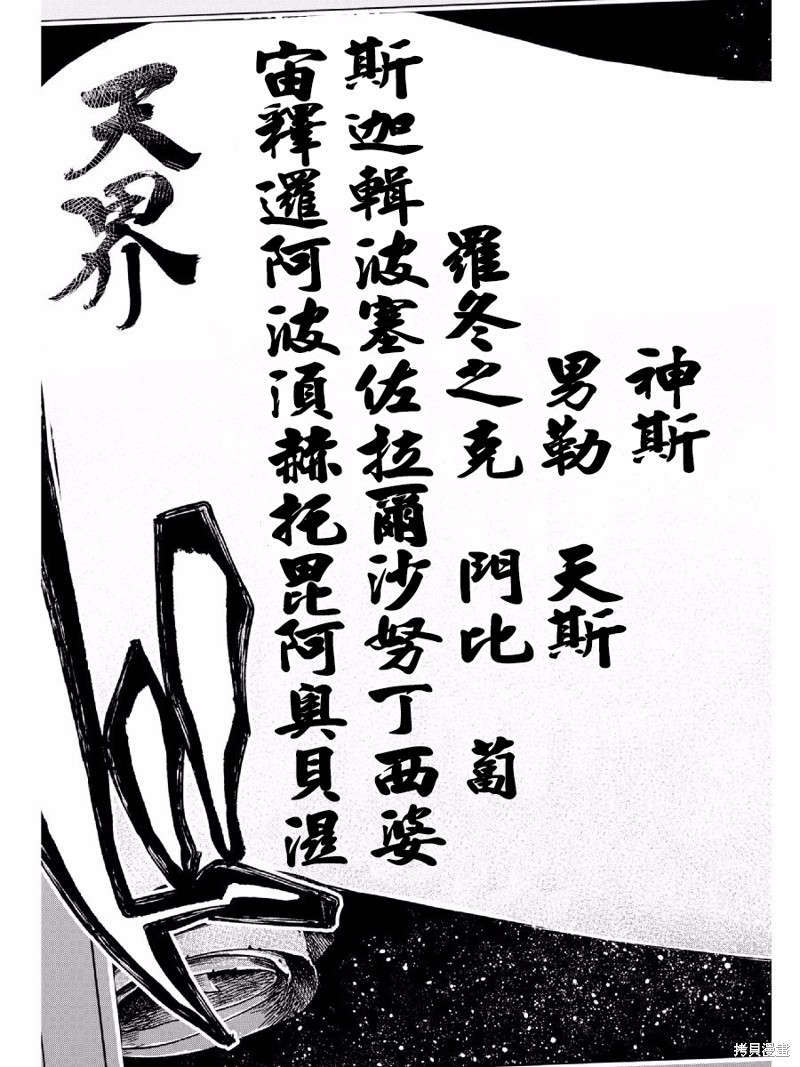 天界
宙斯
釋迦
邏輯
阿波羅
波塞冬
須佐之男神
赫拉克勒斯
托爾
毘沙門天
阿努比斯
奧丁
貝西蔔
湿婆
拷貝漫畫